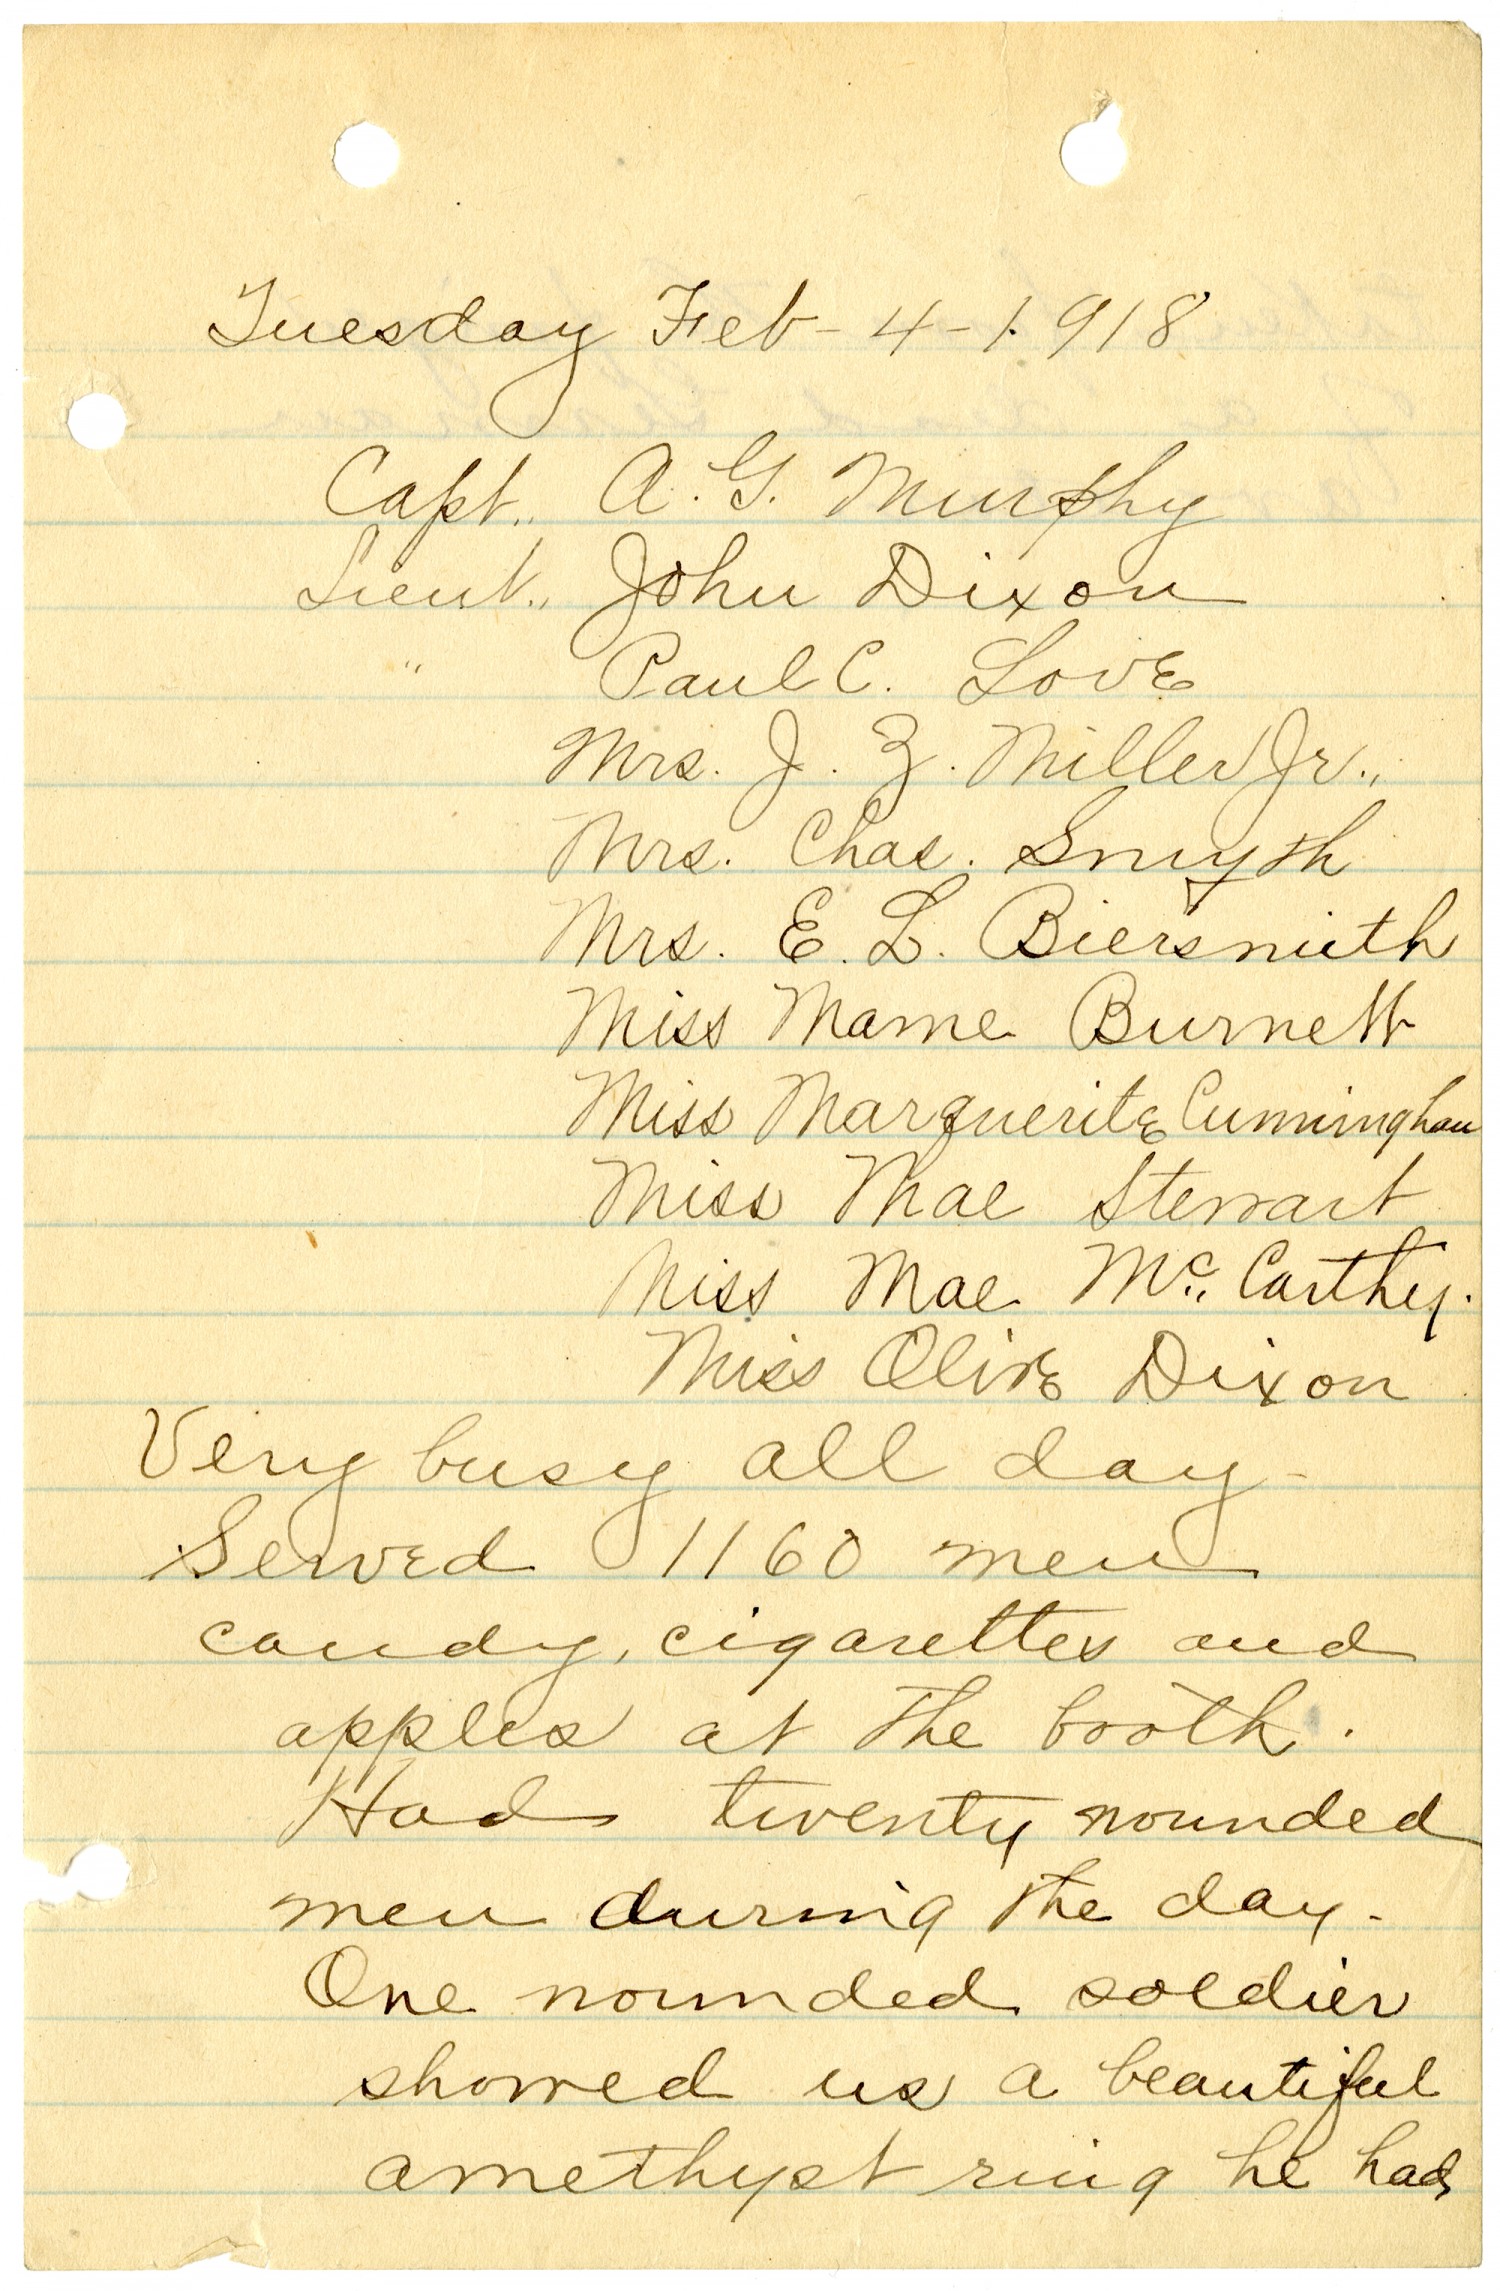 Tuesday Feb - 4 - 1918
Capt., A. G. Murphy
Lieut., John Dixon
" Paul C. Love
Mrs. J. Z. Miller Jr.,
Mrs. Chas. Smyth
Mrs. E. L. Biersmith
Miss Mame Burnett
Miss Marguerite Cunningham
Miss Mae Stewart
Miss Mae Mc., Carthy.
Miss Olive Dixon
Very busy all day -
Served 1160 men
candy, cigarettes and
apples at the booth.
Had twenty wounded
men during the day.
One wounded soldier
showed us a beautiful
amethyst ring he had